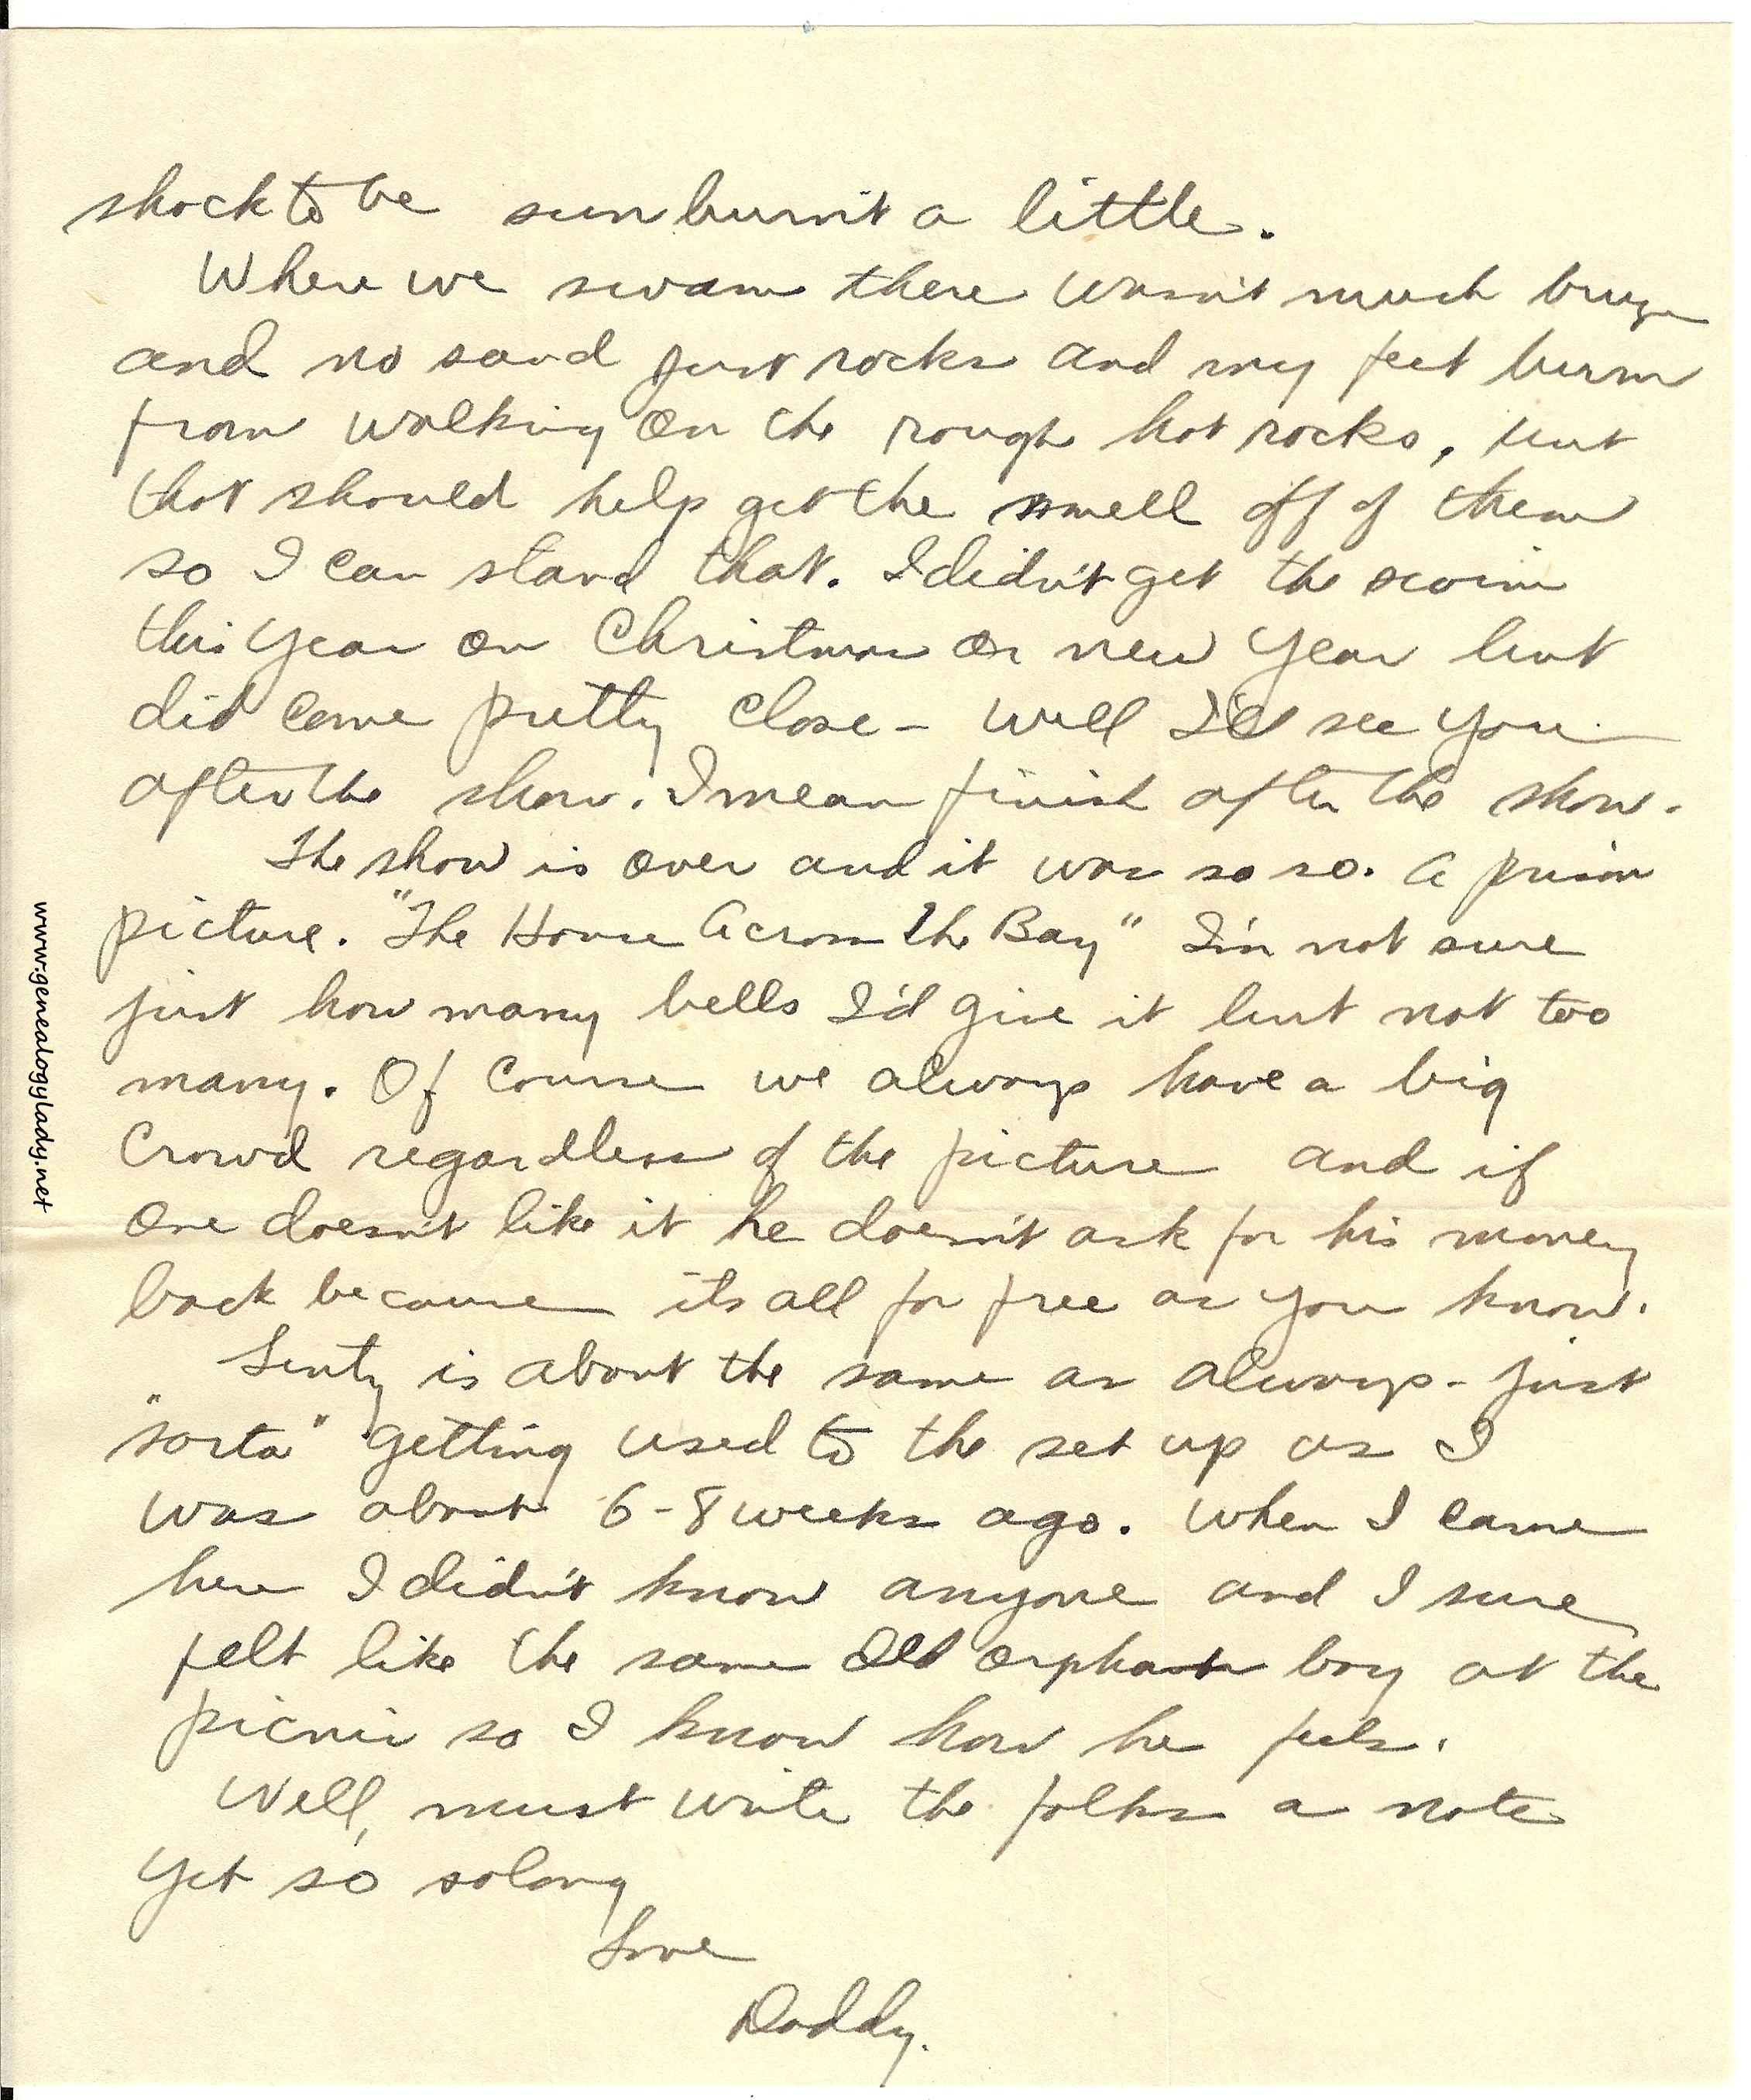 shock to be sunburn't a little.
Where we swam there wasn't much
and no sand just rocks and my feet burn
from walking on the rough hot rocks, but
that should help get the smell off of them
so I can stand that. I didn't get the swim
this year on Christmas or new year but
did come pretty close - Well I'll see you
after the show. I mean finish after the show.
The show is over and it was so so. A prison
picture. "The House Across the Bay" I'm not sure
just how many bells I'd give it but not too
many. Of course we always have a big
Crowd regardless of the picture and if
one doesn't like it he doesn't ask for his money
back because its all for free as you know.
is about the same as always - just
"sorta" getting used to the set up as I
was about 6-8 weeks ago. When I came
here I didn't know anyone and I sure
felt like the same old orphant boy at the
picnic so I know how he feels.
Well, must write the folks a note
yet so solong
Love
Daddy.
www.genealogylady.net